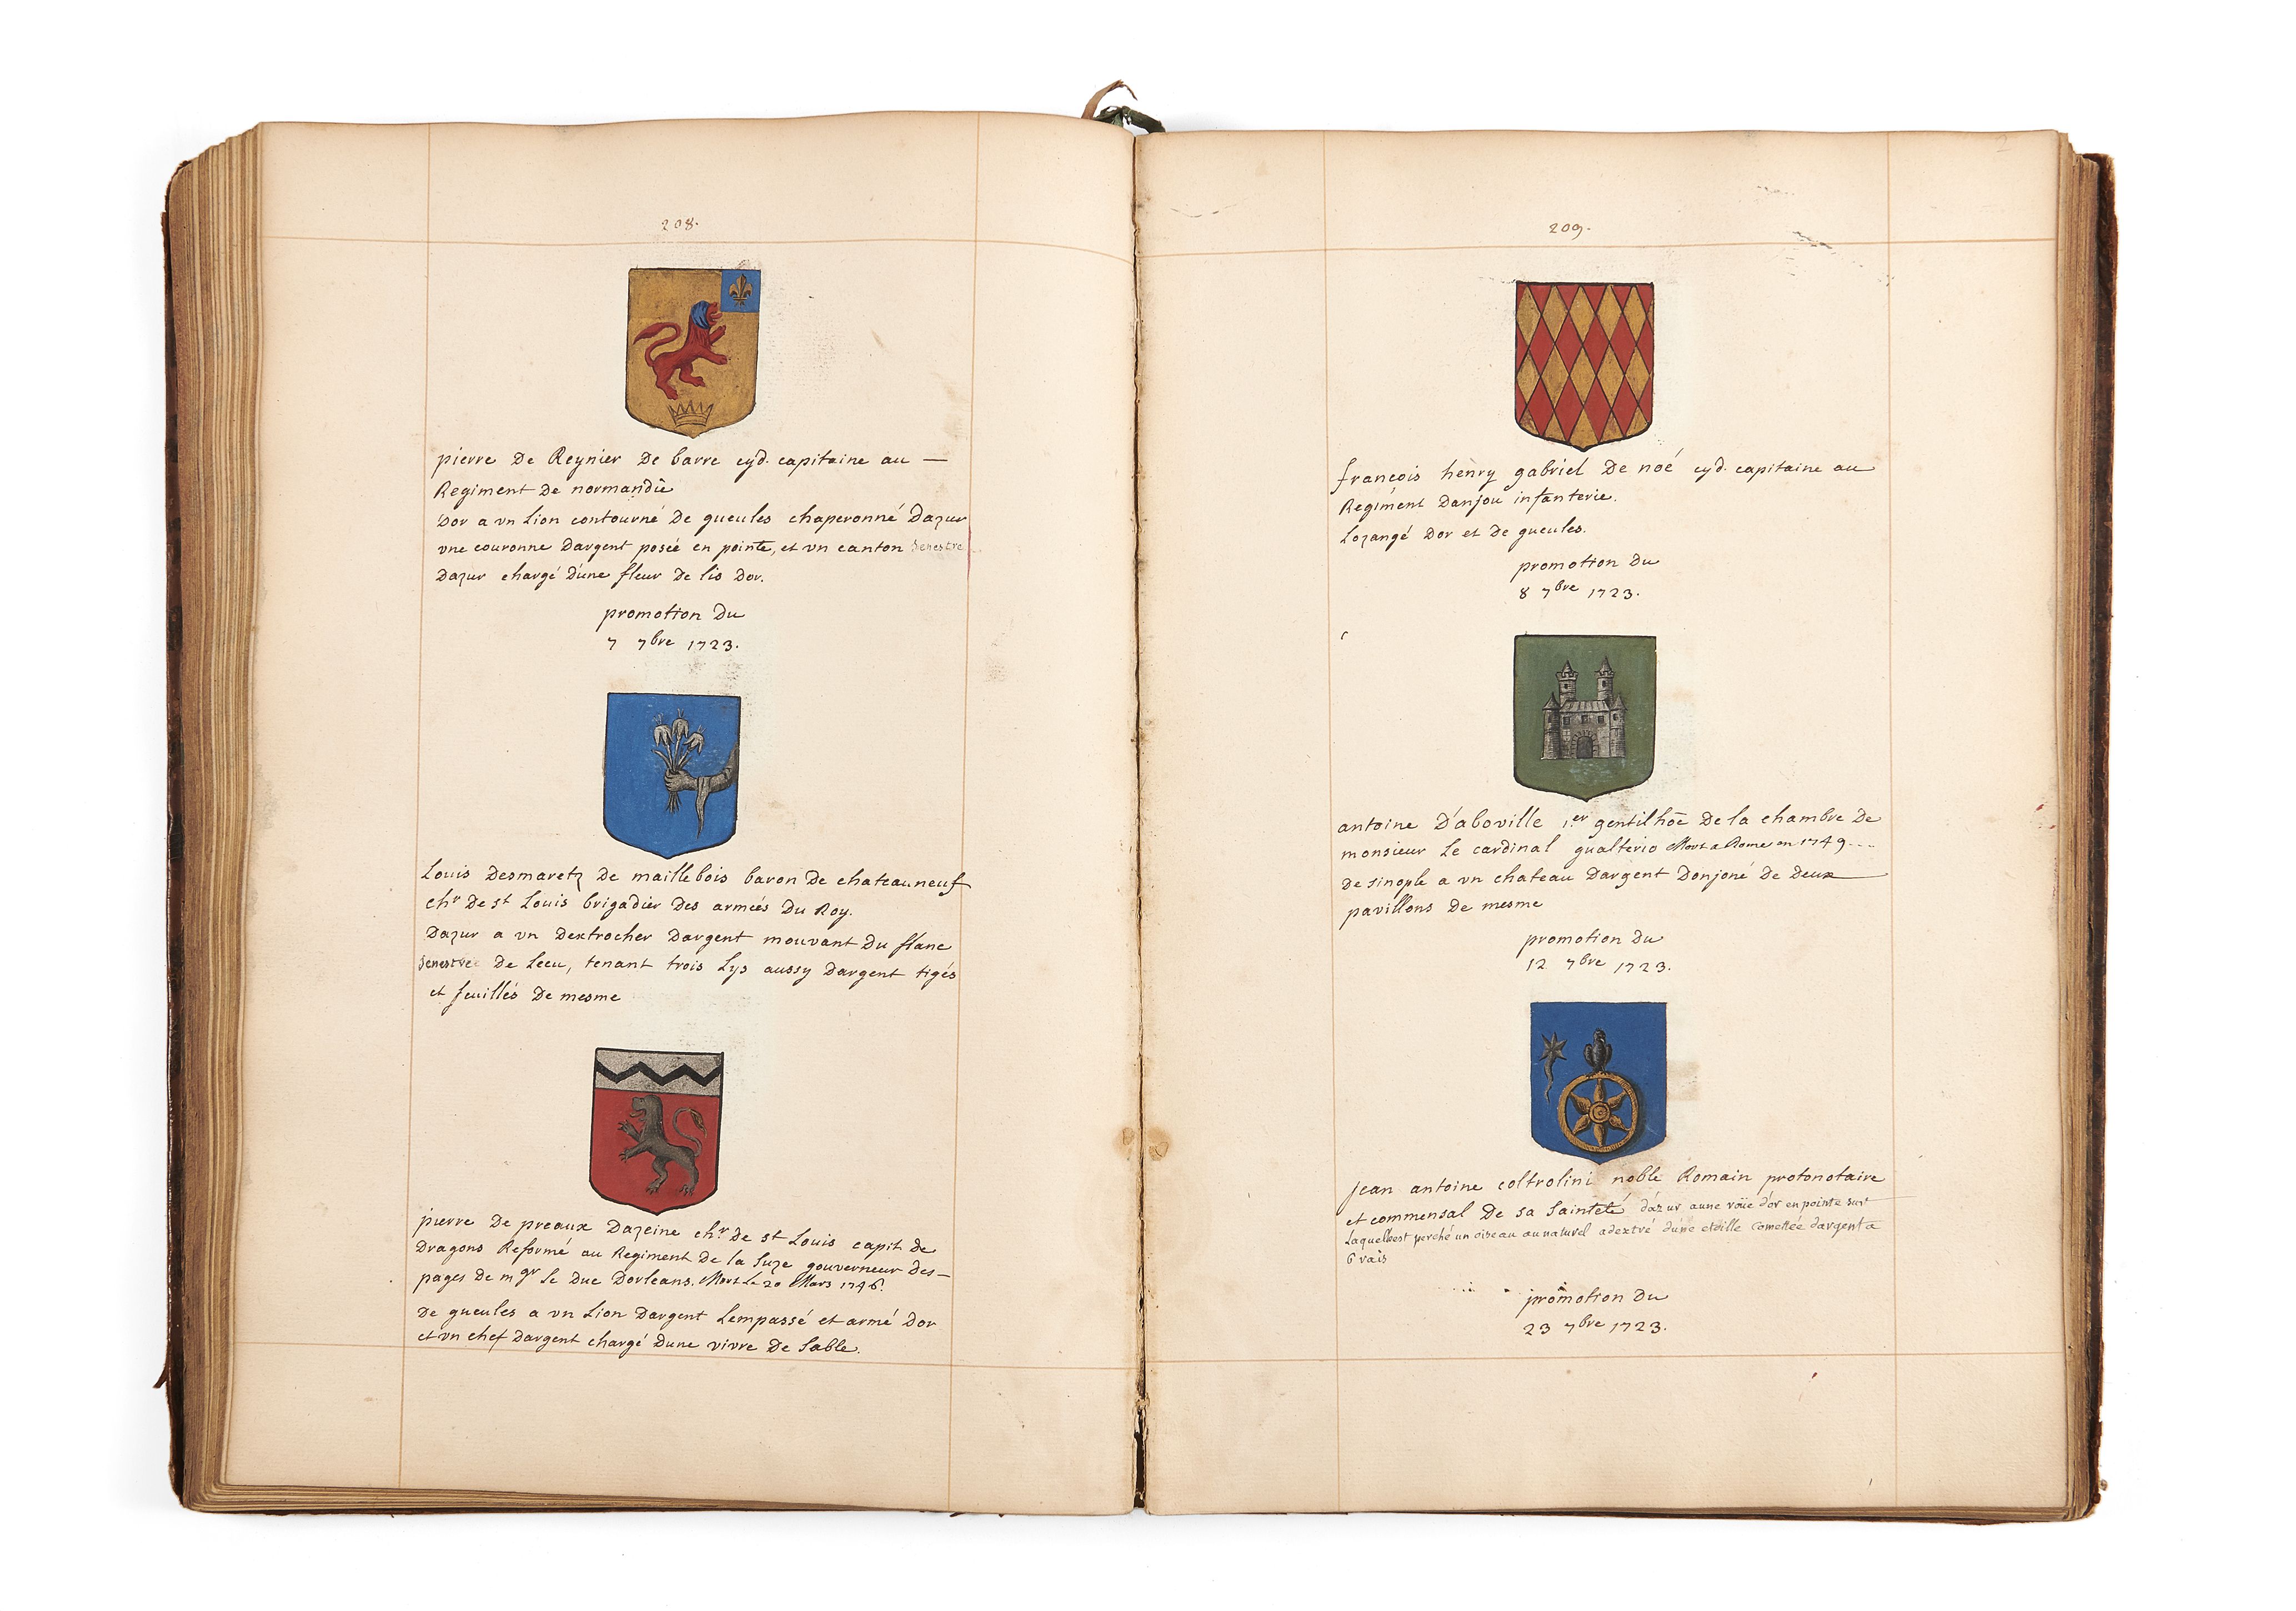 208.
pierre De Reynier De barre cyd. capitaine au —
Regiment De normandie
Dor a vn Lion contourné De gueules chaperonné Dazur
vne couronne Dargent posée en pointe, et vn canton senestre
Dazur chargé Dune fleur De lis Dor.
promotion Du
7 7bre 1723.
Louis Desmaretz De maillebois baron De chateauneuf
chr De st Louis brigadier Des armées Du Roy.
Dazur a vn Dextrocher Dargent mouvant Du flanc
senestre De Lecu, tenant trois Lys aussy Dargent tigés
et feuillés De mesme
pierre De preaux Dazeine chr. De st Louis capit. De
Dragons Reformé au Regiment De la Suze gouverneur Des—
pages De mgr Le Duc Dorleans. Mort Le 20 Mars 1746.
De gueules a vn Lion Dargent Lempassé et armé Dor
et vn chef Dargent chargé Dune vivre De Sable.
209.
françois henry gabriel De noé cyd. capitaine au
Regiment Danjou infanterie.
Lozangé Dor et De gueules.
promotion Du
8 7bre 1723.
antoine D'aboville 1.er gentilhōe De la chambre De
monsieur Le cardinal gualterio Mort a Rome en 1749
De sinople a vn chateau Dargent Donjoné De Deux
pavillons De mesme
promotion Du
12 7bre 1723.
jean antoine coltrolini noble Romain protonotaire
et commensal De sa Sainteté d'azur a une roüe d'or en pointe sur
Laquelle est perché un oiseau au naturel adextré d'une etoille cometée d'argent a
6 rais
promotion Du
23 7bre 1723.